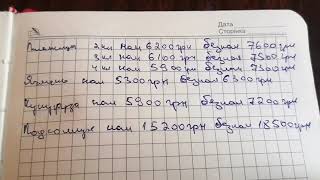 Дата
Сторінка
Пшениця 2 кл нал 6200 грн безнал 7600 грн
3 кл нал 6100 грн безнал 7500 грн
4 кл нал 5900 грн безнал 7300 грн
Ячмень нал 5300 грн безнал 6300 грн
Кукурудза нал 5900 грн безнал 7200 грн
Подсолнух нал 15200 грн безнал 18500 грн